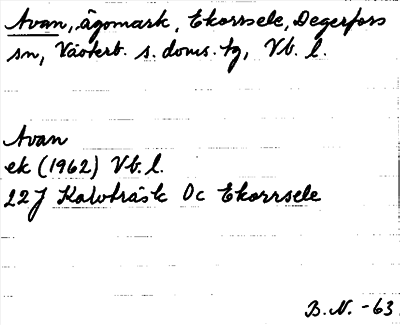 Avan, ägomark, Ekorrsele, Degerfors
sn, Västerb. s. doms. tg, Vb. l.
Avan
ek (1962) Vb. l.
22J Kalvträsk 0c Ekorrsele
B.N. -63